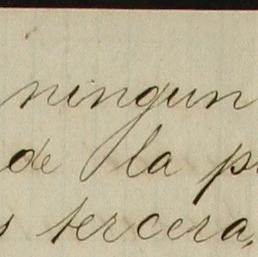 ningun
de la p
s tercera,